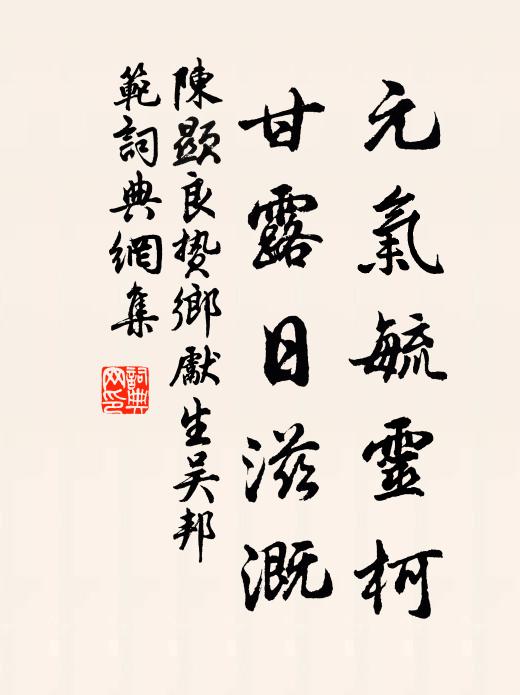 元氣毓靈柯
甘露日滋溉
陳顯良贄鄉獻生吴邦
範詞典網集
詞典
网印